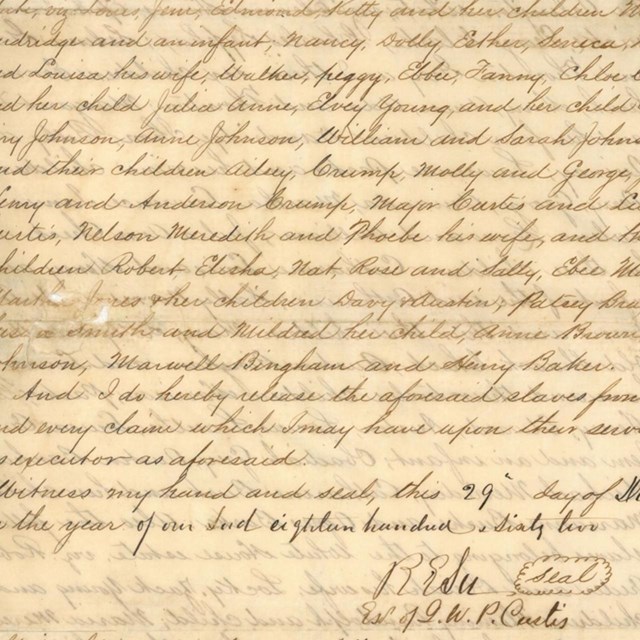 Jim, Edmund, Kitty and her children
and an infant, Nancy, Dolly, Esther, Seneca,
Louisa his wife, Walker, peggy, Ebbee, Fanny, Chloe
d her child Julia Anne, Ivey Young, and her child
ry Johnson, Anne Johnson, William and Sarah Johns
nd their children Ailey, Crump, Molly and George,
enry and Anderson Crump, Major Curtis and
urtis, Nelson Meredith and Phoebe his wife, and th
hildren Robert, Elisha, Nat, Rose and Sally, Ebee M
Jones & her children Davy & Austin, Patsey
Smith and Mildred her child, Anne Brown
ohnson, Marwell Bingham and Henry Baker.
And I do hereby release the aforesaid slaves from
nd every claim which I may have upon their serv
s executor as aforesaid.
Witness my hand and seal, this 29" day of
the year of our Lord eighteen hundred & sixty two
R E Lee seal
Exr of G. W. P. Custis